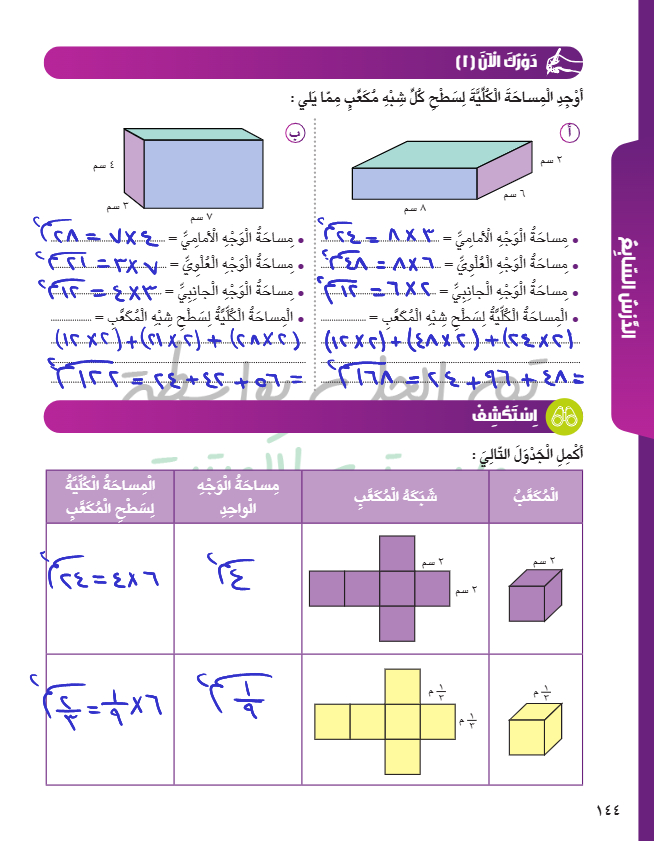 دَوْرُكَ الْآنَ (١)
أَوْجِدِ الْمِساحَةَ الْكُلِّيَّةَ لِسَطْحِ كُلِّ شِبْهِ مُكَعَّبٍ مِمّا يَلي :
أ
٢ سم
٦ سم
٨ سم
مِساحَةُ الْوَجْهِ الْأَمامِيِّ = ٣ × ٨ = ٢٤ سم٢
مِساحَةُ الْوَجْهِ الْعُلْوِيِّ = ٦ × ٨ = ٤٨ سم٢
مِساحَةُ الْوَجْهِ الْجانِبِيِّ = ٢ × ٦ = ١٢ سم٢
الْمِساحَةُ الْكُلِّيَّةُ لِسَطْحِ شِبْهِ الْمُكَعَّبِ =
(٢ × ٢٤) + (٢ × ٤٨) + (٢ × ١٢)
= ٤٨ + ٩٦ + ٢٤ = ١٦٨ سم٢
ب
٤ سم
٣ سم
٧ سم
مِساحَةُ الْوَجْهِ الْأَمامِيِّ = ٤ × ٧ = ٢٨ سم٢
مِساحَةُ الْوَجْهِ الْعُلْوِيِّ = ٧ × ٣ = ٢١ سم٢
مِساحَةُ الْوَجْهِ الْجانِبِيِّ = ٣ × ٤ = ١٢ سم٢
الْمِساحَةُ الْكُلِّيَّةُ لِسَطْحِ شِبْهِ الْمُكَعَّبِ =
(٢ × ٢٨) + (٢ × ٢١) + (٢ × ١٢)
= ٥٦ + ٤٢ + ٢٤ = ١٢٢ سم٢
اِسْتَكْشِفْ
أَكْمِلِ الْجَدْوَلَ التّالِيَ :
الْمُكَعَّبُ
شَبَكَةُ الْمُكَعَّبِ
مِساحَةُ الْوَجْهِ الْواحِدِ
الْمِساحَةُ الْكُلِّيَّةُ لِسَطْحِ الْمُكَعَّبِ
٢ سم
٢ سم
٢ سم
٤ سم٢
٦ × ٤ = ٢٤ سم٢
١/٣ م
١/٣ م
١/٣ م
١/٩ م٢
٦ × ١/٩ = ٢/٣ م٢
الدَّرْسُ السّابِعُ
١٤٤